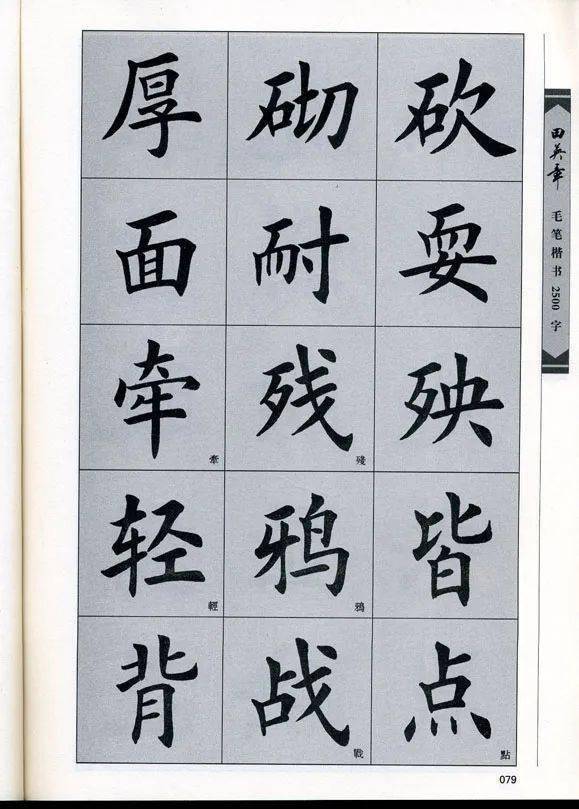 厚 砌 砍
面 耐 耍
牵 牽 残 殘 殃
轻 輕 鸦 鴉 皆
背 战 戰 点 點
田英章 毛笔楷书 2500 字
079